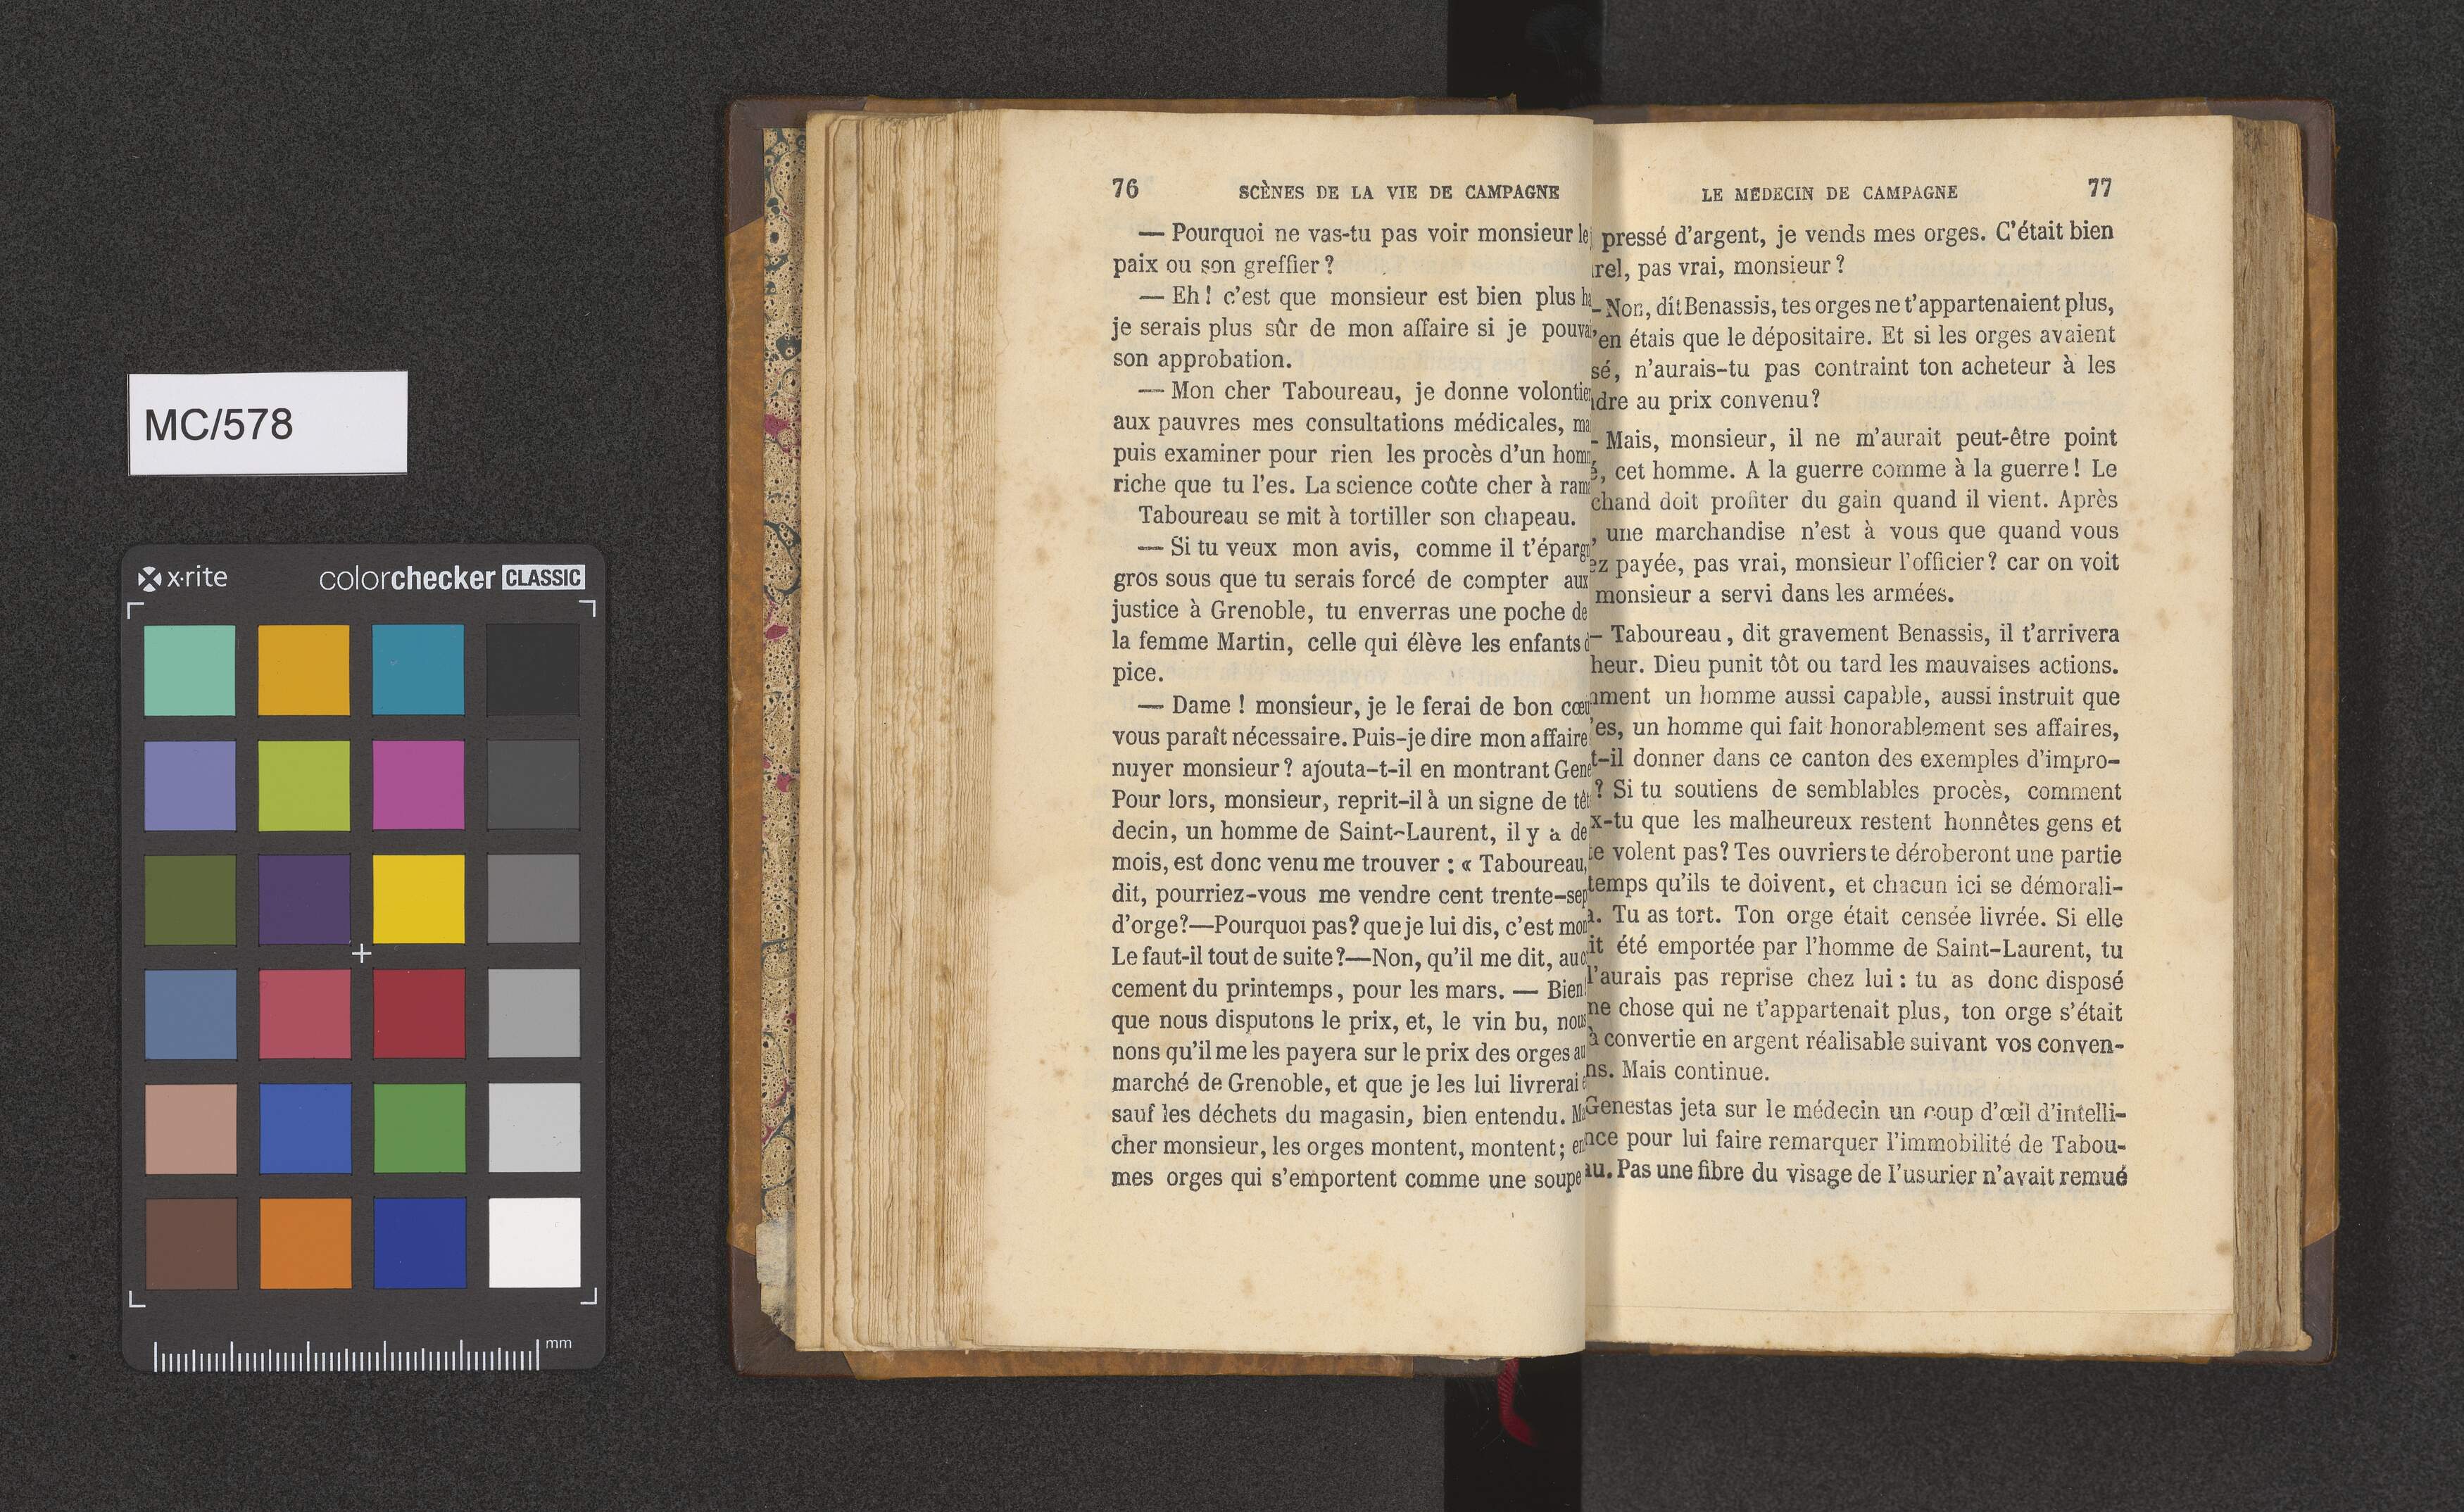 MC/578
x·rite
colorchecker CLASSIC
mm
76
SCÈNES DE LA VIE DE CAMPAGNE
— Pourquoi ne vas-tu pas voir monsieur le
paix ou son greffier ?
— Eh ! c'est que monsieur est bien plus
je serais plus sûr de mon affaire si je
son approbation.
— Mon cher Taboureau, je donne
aux pauvres mes consultations médicales,
puis examiner pour rien les procès d'un
riche que tu l'es. La science coûte cher à
Taboureau se mit à tortiller son chapeau.
— Si tu veux mon avis, comme il
gros sous que tu serais forcé de compter aux
justice à Grenoble, tu enverras une poche de
la femme Martin, celle qui élève les enfants
pice.
— Dame ! monsieur, je le ferai de bon
vous paraît nécessaire. Puis-je dire mon affaire
nuyer monsieur ? ajouta-t-il en montrant
Pour lors, monsieur, reprit-il à un signe de
decin, un homme de Saint-Laurent, il y a
mois, est donc venu me trouver : « Taboureau,
dit, pourriez-vous me vendre cent
d'orge?—Pourquoi pas? que je lui dis, c'est
Le faut-il tout de suite?—Non, qu'il me dit,
cement du printemps, pour les mars. — Bien
que nous disputons le prix, et, le vin bu,
nons qu'il me les payera sur le prix des orges
marché de Grenoble, et que je les lui livrerai
sauf les déchets du magasin, bien entendu.
cher monsieur, les orges montent, montent ;
mes orges qui s'emportent comme une soupe
LE MÉDECIN DE CAMPAGNE
77
pressé d'argent, je vends mes orges. C'était bien
pas vrai, monsieur ?
— Non, dit Benassis, tes orges ne t'appartenaient plus,
étais que le dépositaire. Et si les orges avaient
n'aurais-tu pas contraint ton acheteur à les
au prix convenu?
— Mais, monsieur, il ne m'aurait peut-être point
cet homme. A la guerre comme à la guerre ! Le
doit profiter du gain quand il vient. Après
une marchandise n'est à vous que quand vous
payée, pas vrai, monsieur l'officier ? car on voit
monsieur a servi dans les armées.
— Taboureau, dit gravement Benassis, il t'arrivera
Dieu punit tôt ou tard les mauvaises actions.
un homme aussi capable, aussi instruit que
un homme qui fait honorablement ses affaires,
donner dans ce canton des exemples d'impro-
? Si tu soutiens de semblables procès, comment
que les malheureux restent honnêtes gens et
volent pas? Tes ouvriers te déroberont une partie
temps qu'ils te doivent, et chacun ici se démorali-
Tu as tort. Ton orge était censée livrée. Si elle
été emportée par l'homme de Saint-Laurent, tu
l'aurais pas reprise chez lui : tu as donc disposé
chose qui ne t'appartenait plus, ton orge s'était
convertie en argent réalisable suivant vos conven-
Mais continue.
Genestas jeta sur le médecin un coup d'œil d'intelli-
pour lui faire remarquer l'immobilité de Tabou-
Pas une fibre du visage de l'usurier n'avait remué